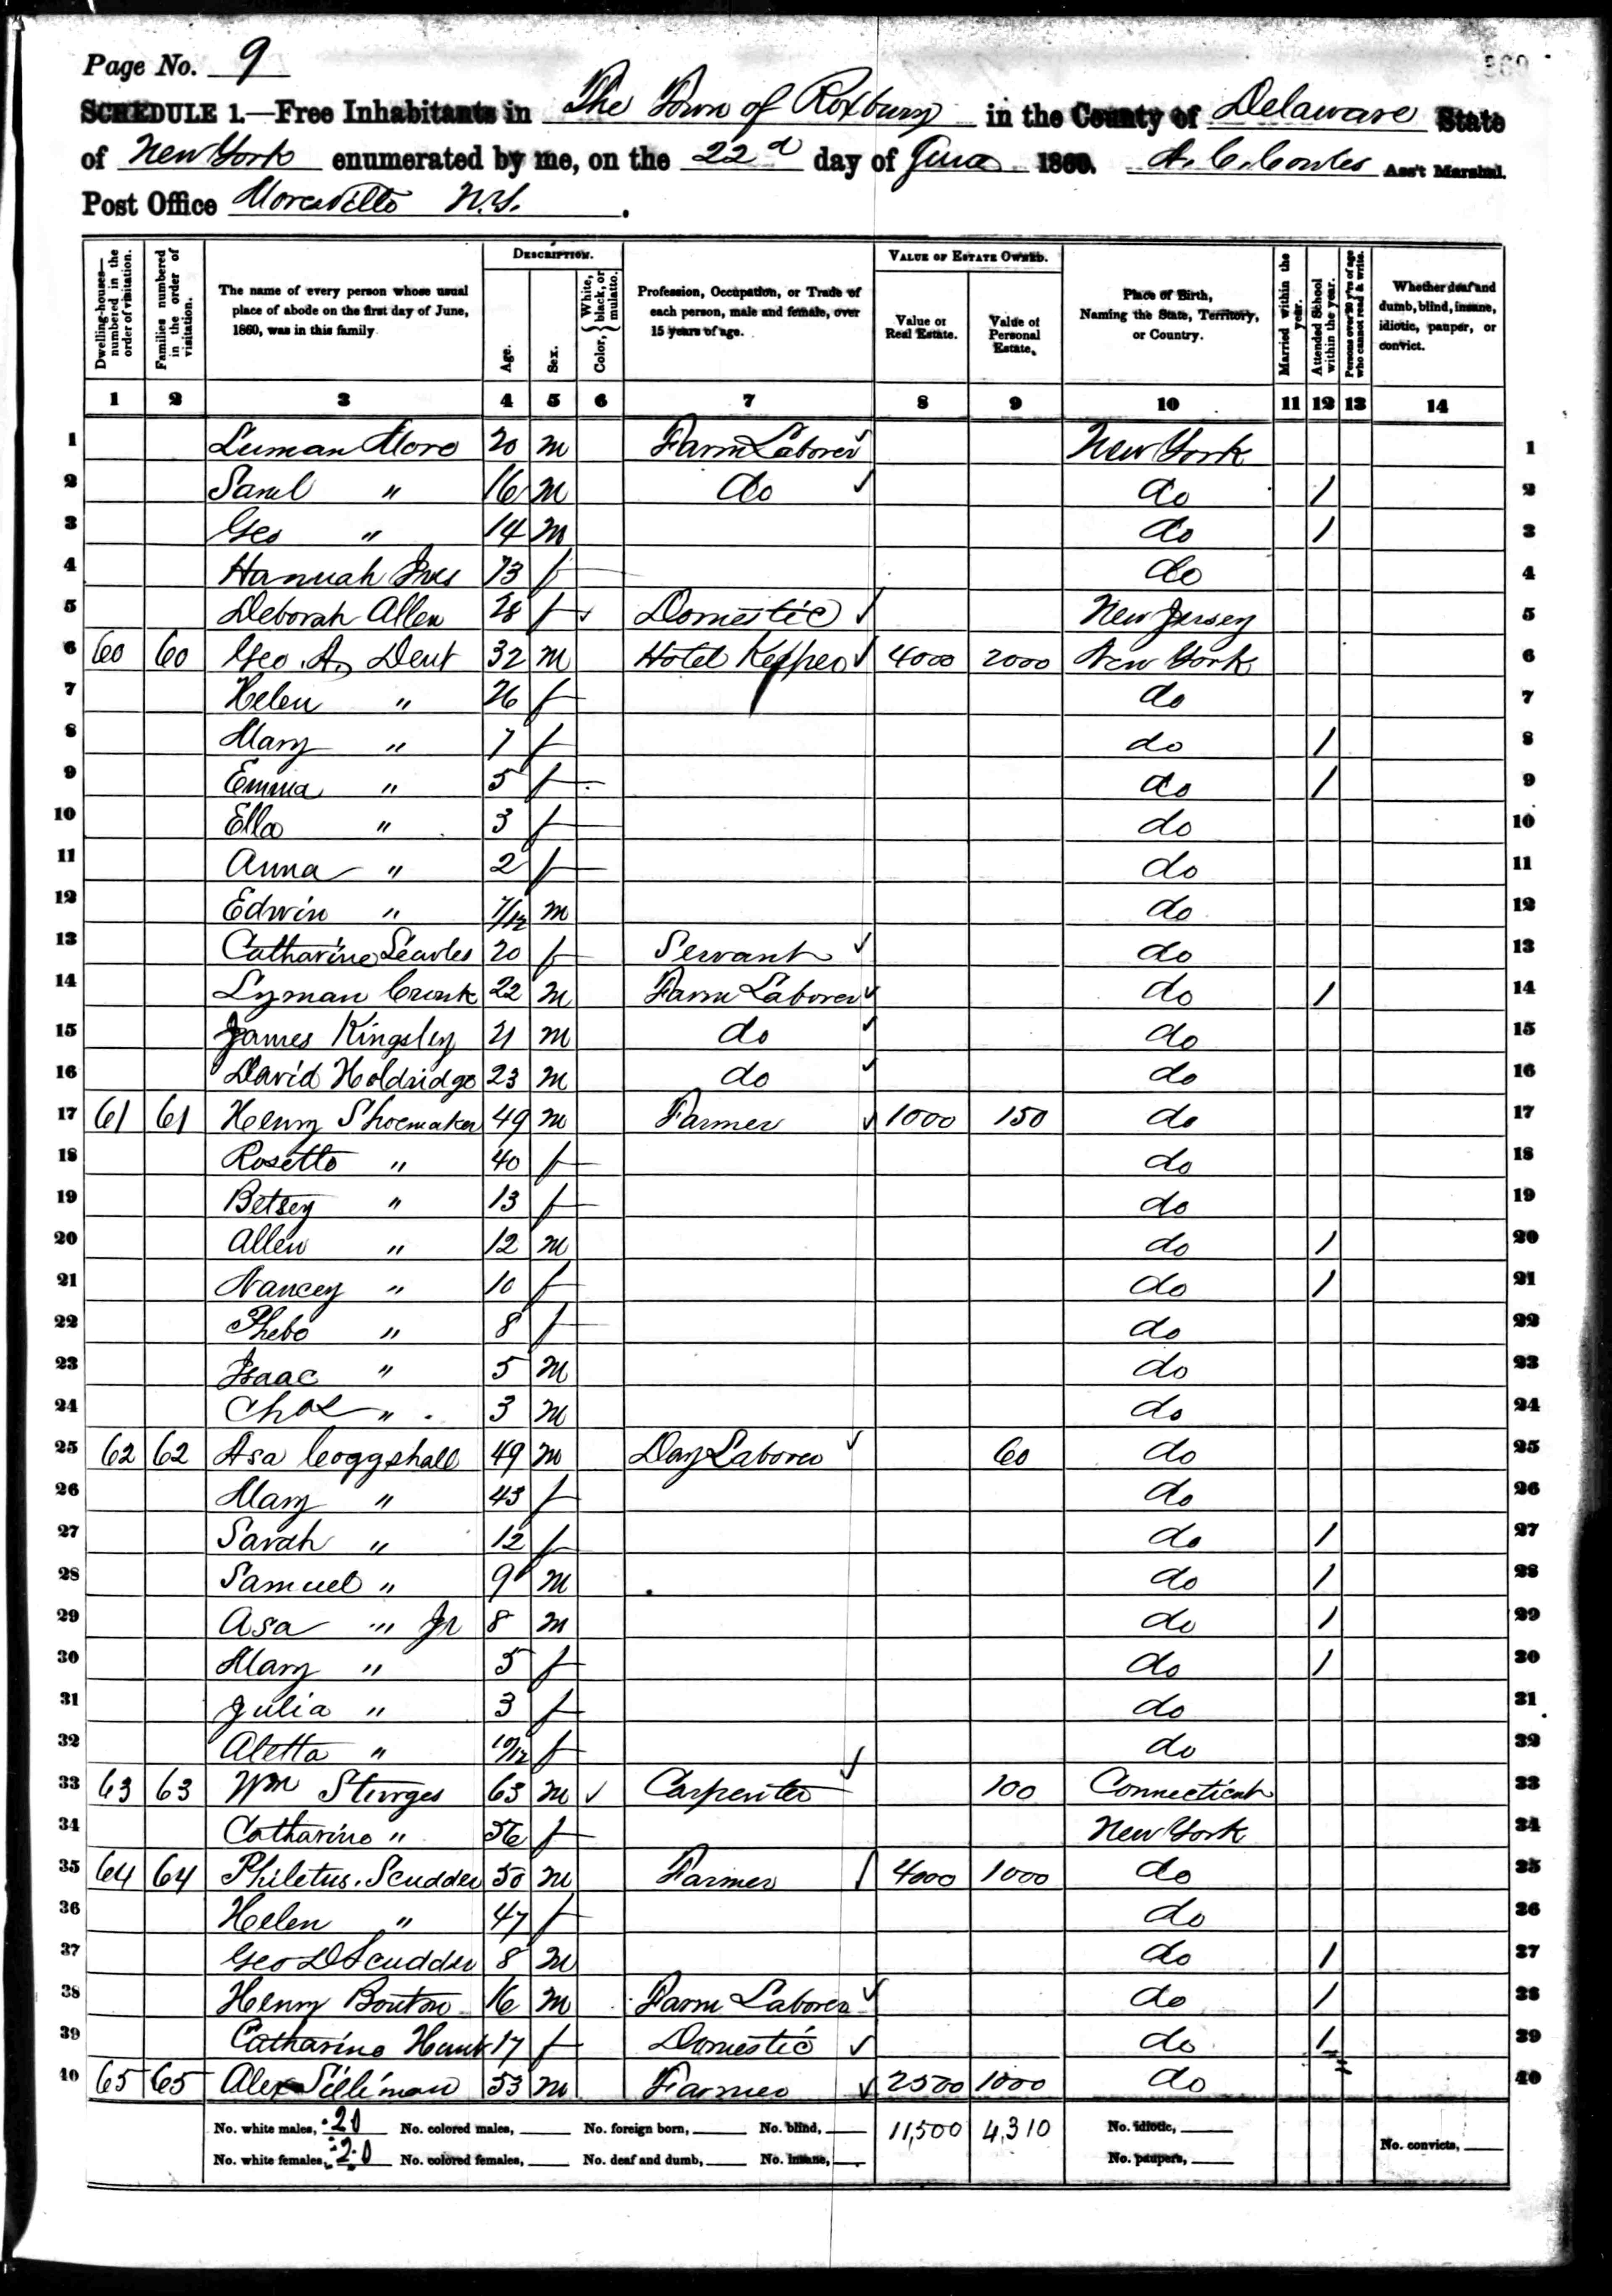 Page No. 9
SCHEDULE 1.—Free Inhabitants in The Town of Roxbury in the County of Delaware State
of New York enumerated by me, on the 22d day of June 1860. Ass't Marshal.
Post Office N.Y.
Dwelling-houses—numbered in the order of visitation.
Families numbered in the order of visitation.
The name of every person whose usual place of abode on the first day of June, 1860, was in this family.
Description.
Age.
Sex.
Color, { White, black, or mulatto.
Profession, Occupation, or Trade of each person, male and female, over 15 years of age.
Value of Estate Owned.
Value of Real Estate.
Value of Personal Estate.
Place of Birth, Naming the State, Territory, or Country.
Married within the year.
Attended School within the year.
Persons over 20 y'rs of age who cannot read & write.
Whether deaf and dumb, blind, insane, idiotic, pauper, or convict.
1 2 3 4 5 6 7 8 9 10 11 12 13 14
1 Luman More 20 m Farm Laborer ✓ New York 1
2 Saml " 16 m do ✓ do / 2
3 Geo " 14 m do / 3
4 Hannah Ives 73 f do 4
5 Deborah Allen 28 f ✓ Domestic ✓ New Jersey 5
6 60 60 Geo. A. Dent 32 m Hotel Kepper ✓ 4000 2000 New York 6
7 Helen " 26 f do 7
8 Mary " 7 f do / 8
9 Emma " 5 f do / 9
10 Ella " 3 f do 10
11 Anna " 2 f do 11
12 Edwin " 7/12 m do 12
13 Catharine Searles 20 f Servant ✓ do 13
14 Lyman Cronk 22 m Farm Laborer ✓ do / 14
15 James Kingsley 21 m do ✓ do 15
16 David Holdridge 23 m do ✓ do 16
17 61 61 Henry Shoemaker 49 m Farmer ✓ 1000 150 do 17
18 Rosetta " 40 f do 18
19 Betsey " 13 f do 19
20 Allen " 12 m do / 20
21 Nancey " 10 f do / 21
22 Phebe " 8 f do 22
23 Isaac " 5 m do 23
24 Chas " 3 m do 24
25 62 62 Asa Coggshall 49 m Day Laborer ✓ 60 do 25
26 Mary " 43 f do 26
27 Sarah " 12 f do / 27
28 Samuel " 9 m do / 28
29 Asa " Jr 8 m do / 29
30 Mary " 5 f do / 30
31 Julia " 3 f do 31
32 Aletta " 10/12 f do 32
33 63 63 Wm Sturges 63 m ✓ Carpenter ✓ 100 Connecticut 33
34 Catharine " 56 f New York 34
35 64 64 Philetus Scudder 50 m Farmer ✓ 4000 1000 do 35
36 Helen " 47 f do 36
37 Geo D Scudder 8 m do / 37
38 Henry Bouton 16 m Farm Laborer ✓ do / 38
39 Catharine 17 f Domestic ✓ do / 39
40 65 65 Alex Silliman 53 m Farmer ✓ 2500 1000 do 40
No. white males, 20 No. colored males, No. foreign born, No. blind, 11,500 4,310 No. idiotic,
No. white females, 20 No. colored females, No. deaf and dumb, No. insane, No. paupers, No. convicts,